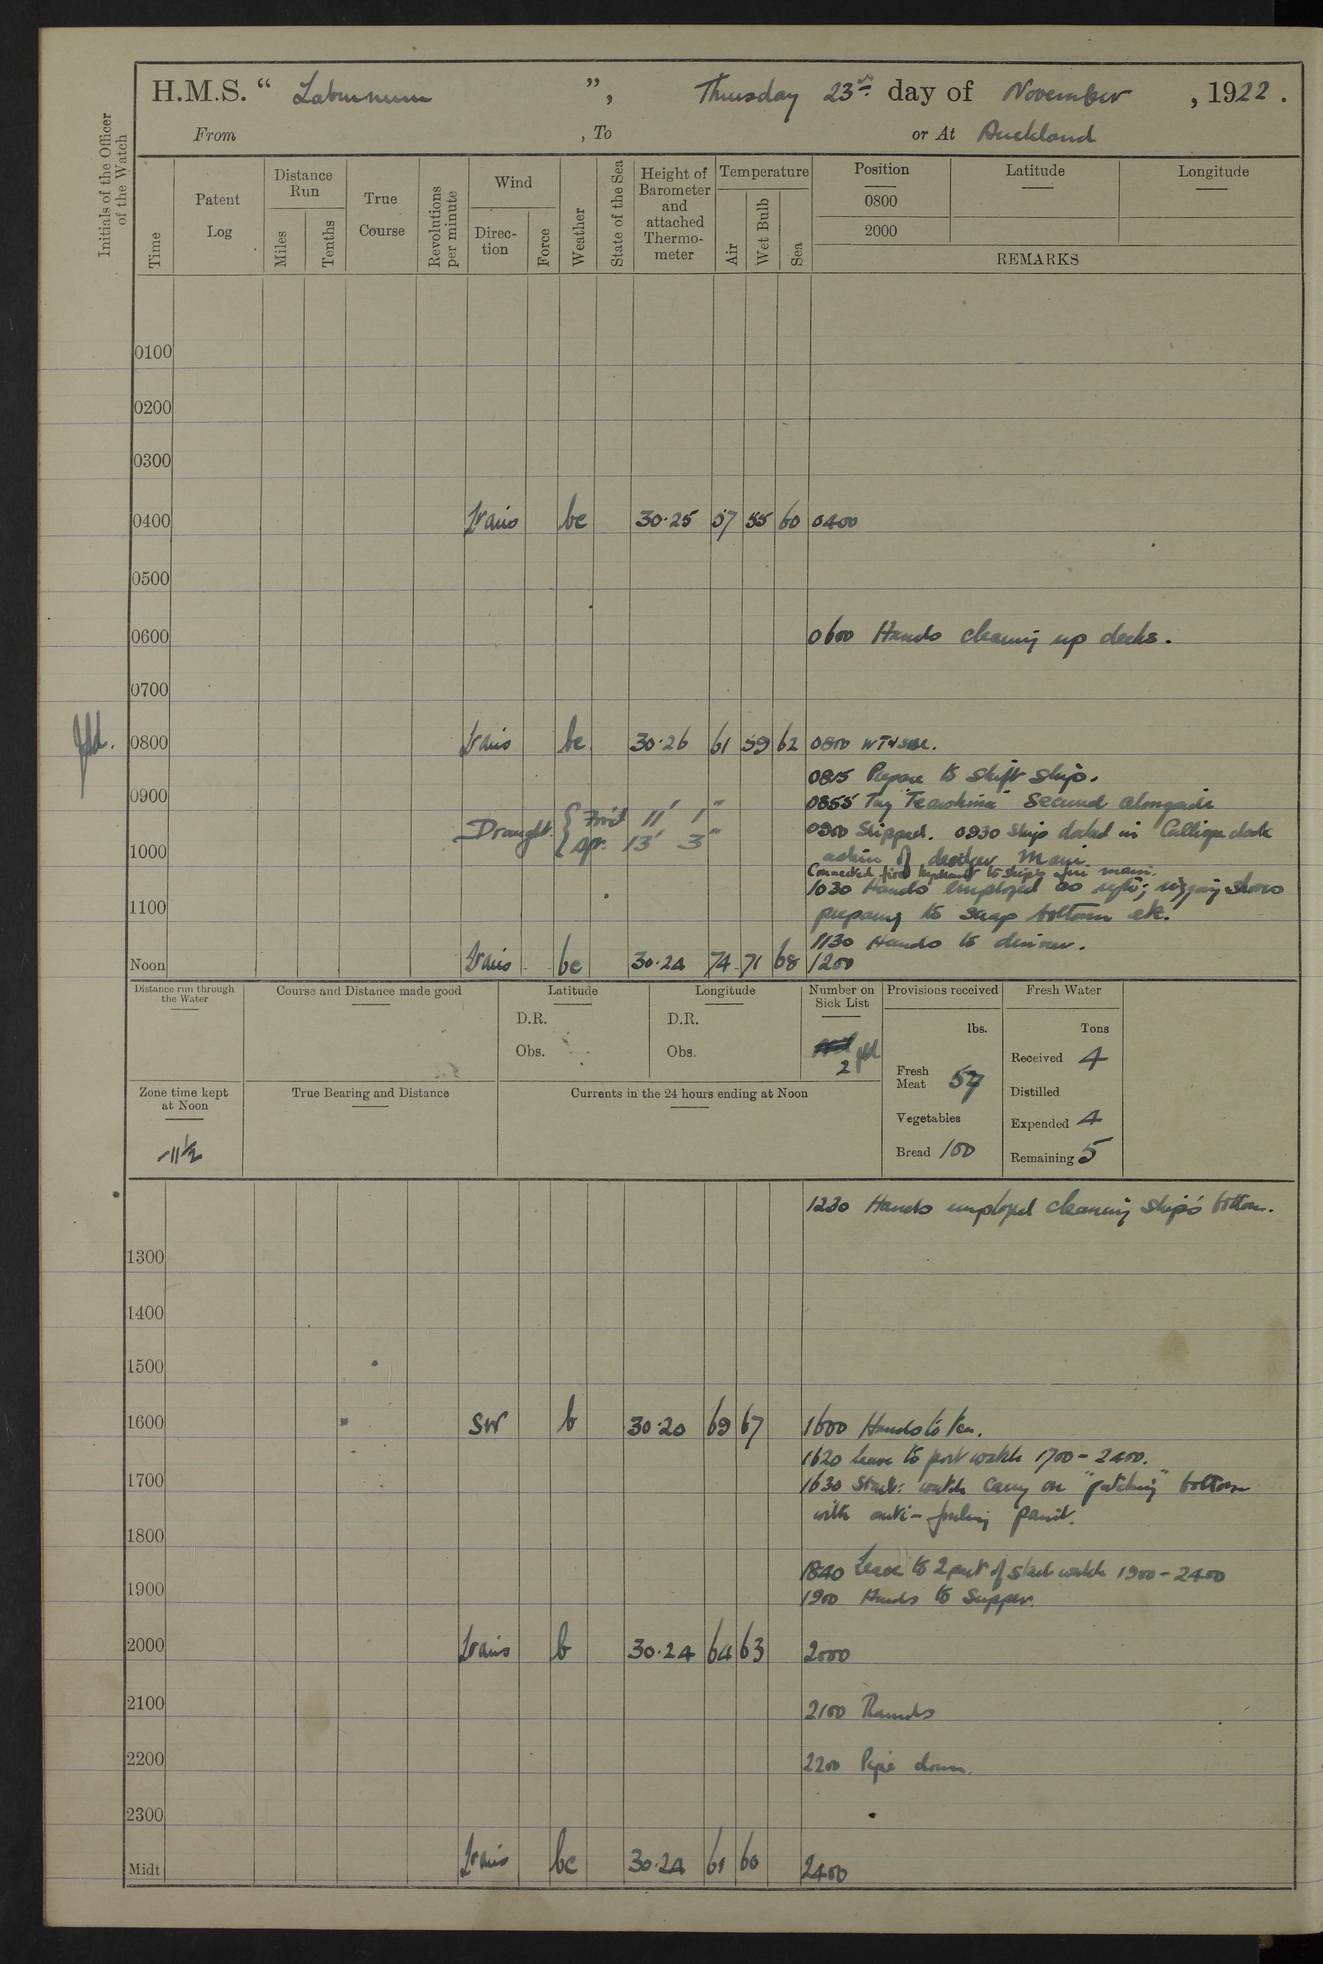 H.M.S. “ Laburnum ”, Thursday 23rd day of November, 1922.
From , To or At Auckland
Initials of the Officer of the Watch
Time
Patent Log
Distance Run
Miles
Tenths
True Course
Revolutions per minute
Wind
Direc-tion
Force
Weather
State of the Sea
Height of Barometer and attached Thermo-meter
Temperature
Air
Wet Bulb
Sea
Position
0800
2000
Latitude
Longitude
REMARKS
0100
0200
0300
0400 Vairs bc 30·25 57 55 60 0400
0500
0600 0600 Hands cleaning up decks.
0700
0800 Vairs bc 30·26 61 59 62 0800
0815 Prepare to shift ship.
0900 0855 Tug secured alongside
Draught { For'd 11' 1"
13' 3"
0900 Slipped. 0930 Ship docked in Calliope dock
1000 astern of
Connected fire hydrant to ship's fire main.
1030 Hands employed as rigging shores
1100 preparing to scrap bottom etc.
1130 Hands to dinner.
Noon Vairs bc 30·24 74 71 68 1200
Distance run through the Water
Course and Distance made good
Latitude
D.R.
Obs.
Longitude
D.R.
Obs.
Number on Sick List
2
Provisions received
lbs.
Fresh Meat 57
Vegetables
Bread 100
Fresh Water
Tons
Received 4
Distilled
Expended 4
Remaining 5
Zone time kept at Noon
-11½
True Bearing and Distance
Currents in the 24 hours ending at Noon
1230 Hands employed cleaning ship's bottom.
1300
1400
1500
1600 SW b 30·20 69 67 1600 Hands to tea.
1620 leave to port watch 1700 - 2400.
1700 1630 Starb: watch carry on "patching" bottom
with anti-fouling paint.
1800
1840 Leave to 2 part of starb watch 1900 - 2400
1900 1900 Hands to Supper.
2000 Vairs b 30·24 64 63 2000
2100 2100 Rounds
2200 2200 Pipe down.
2300
Midt Vairs bc 30·24 61 60 2400